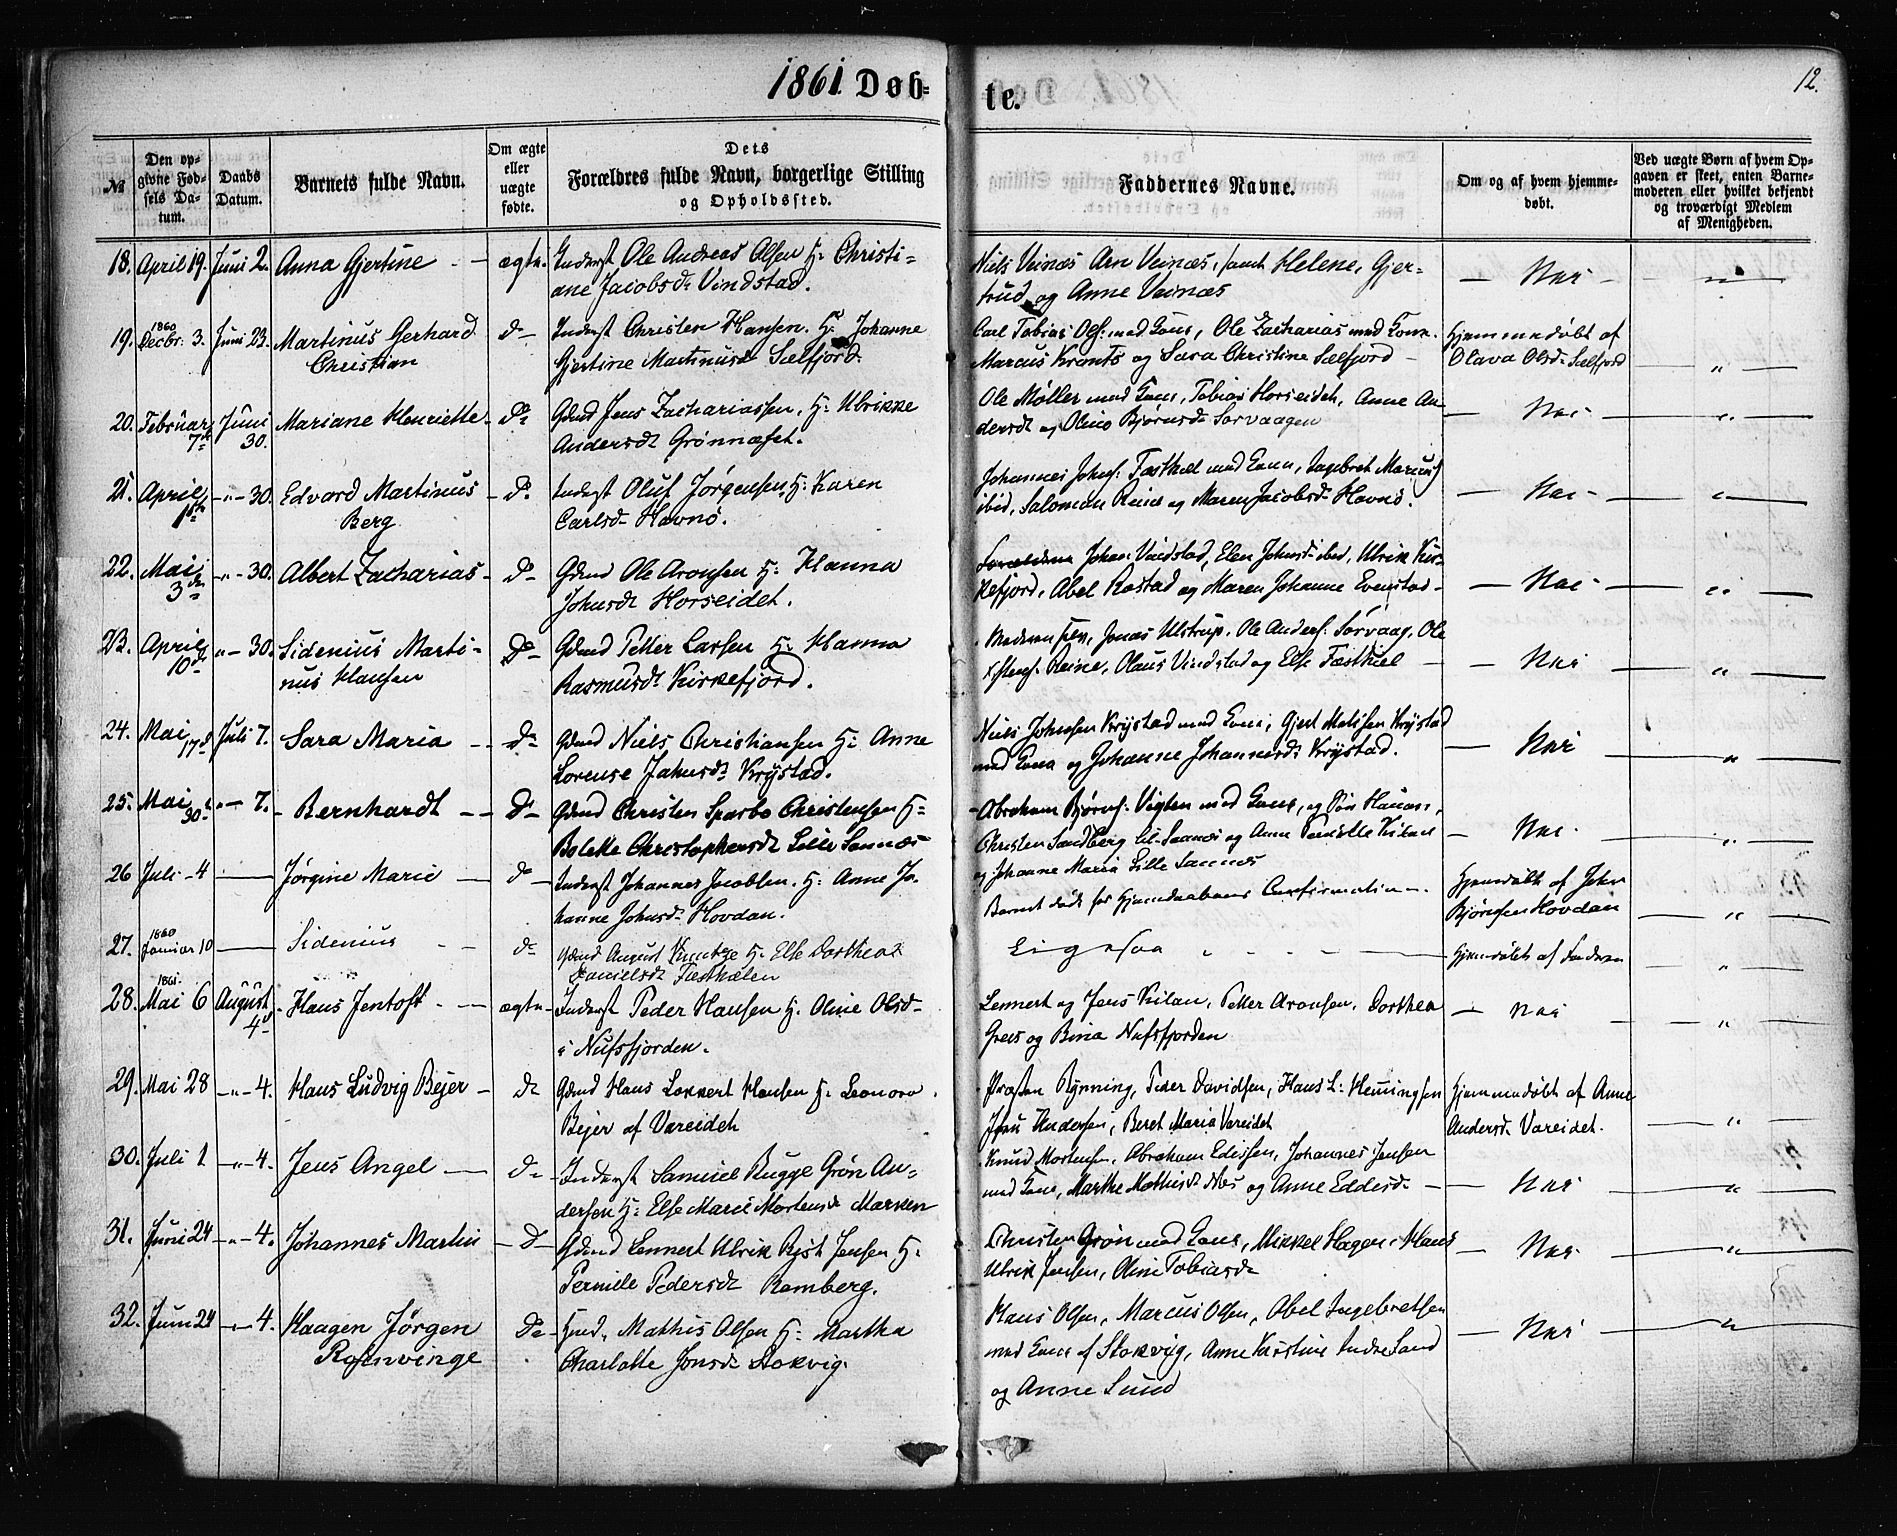 1861 Døb-
te.
12.
№
Den op-
givne Fød-
sels Da-
tum.
Daabs
Datum.
Barnets fulde Navn.
Om ægte
eller
uægte
fødte.
Dets
Forældres fulde Navn, borgerlige Stilling
og Opholdssted.
Faddernes Navne.
Om og af hvem hjemme-
døbt.
Ved uægte Børn af hvem Op-
gaven er skeet, enten Barne-
moderen eller hvilket bekjendt
og troværdigt Medlem
af Menigheden.
18. April 19. Juni 2. Anna Gjertine ægte. Inderst Ole Andreas Olsen H: Christi-
ane Jacobsd. Vindstad.
Niels Veinæs Arn Veinæs, samt Helene, Gjer-
trud og Anne Veinæs
Nei
19. 1860 Decbr: 3. Juni 23. Martinus Gerhard
Christian
do Inderst Christen Hansen. H: Johanne
Gjertine Martinusd. Selfjord.
Carl Tobias Ols: med Kone, Ole Zacharias med Kone.
Marcus Krants og Sara Christine Selfjord
Hjemmedøbt af
Olava Olsd. Selfjord
20. Februar
7de
Juni
30.
Mariane Henriette. do Gdmd Jens Zachariassen. H: Ulrikke
Andersdt Grønnæset.
Ole Møller med Kone, Tobias Horseidet, Anne An-
dersdt og Oline Bjørnsd. Sørvaagen
Nei
21. April " 30. Edvard Martinus
Berg
do Inderst Oluf Jørgensen, H: Karen
Carlsd. Havnø.
Johannes Johns: Fæsthæl med Kone, Ingebret Marcus
ibid, Salomon Reine og Maren Jacobsd. Havnø.
Nei
22. Mai
3de
" 30. Albert Zacharias do Gdmd Ole Aronsen H: Hanna
Johnsdt Horseidet.
Johan Vindstad, Elen Johnsd. ibid, Ulrik Kir-
kefjord, Abel Rostad og Maren Johanne Evenstad
Nei
23. April
10de
" 30. Sidenius Marti-
nus Hansen
Do Gdmd Petter Larsen H: Hanna
Rasmusdt Kirkefjord.
Jonas Ulstrup, Ole Anders: Sørvaag, Ole
Reine, Olaus Vindstad og Else Fæsthæl
Nei
24. Mai
17d
Juli 7. Sara Maria do Gdmd Niels Christiansen H: Anne
Lorense Johnsdt Krystad.
Niels Johnsen Krystad med Kone, Gjert Matisen Krystad
med Kone og Johanne Johannesdt Krystad.
Nei
25. Mai
30te
" 7. Bernhardt Do Gdmd Christen Sparbo Christensen H:
Bolette Christophersdt Lille Sannæs
Abraham Bjørns: Vigten med Kone,
Christen Sandberg Lil-Sannæs og Anne Pernille Kilan
og Johanne Maria Lille Sannæs
Nei
26 Juli 4 Jørgine Marie do Inderst Johannes Jacobsen. H: Anne Jo-
hanne Johnsd. Hovdan.
Barnet døde før Hjemmedaabens Confirmation
Hjemmedøbt af John
Bjørnsen Hovdan
27. 1860 Januar 10 Sidenius do Gdmd August Kuntze H: Else Dorthea
Danielsdt Fæsthælen
Ligesaa
Hjemmedøbt af
28. 1861. Mai 6 August
4d
Hans Jentoft ægte Inderst Peder Hansen H. Oline Olsd
i Nufsfjorden.
Lennert og Jens Kilan, Petter Aronsen, Dorthea
Grees og Bina Nufsfjorden
Nei
29. Mai 28 " 4. Hans Ludvig Bejer do Gdmd Hans Lokkert Hansen H: Leonora
Bejer af Vareidet
Præsten Rynning, Peder Davidsen, Hans L: Hemingsen
Andersen, Beret Maria Vareidet
Hjemmedøbt af Anne
Andersd. Vareidet.
30. Juli 1 " 4. Jens Angel do Inderst Samuel Bugge Grøn An-
dersen H: Else Marie Mortensd. Mærven
Knud Mortensen, Abraham Edissen, Johannes Jensen
med Kone, Marthe Mathisdt Næs og Anne Eddesd.
Nei
31. Juni 24 " 4. Johannes Martin Do Gdmd Lennert Ulrik Rist Jensen H:
Pernille Pedersdt Ramberg.
Christen Grøn med Kone, Mikkel Hagen, Hans
Ulrik Jensen, Oline Tobiasd.
Nei
32. Juni 24 " 4. Haagen Jørgen
Rosenvinge
Do Gmd. Mathis Olsen H: Martha
Charlotte Jonsd. Stokvig.
Hans Olsen, Marcus Olsen, Abel Ingebretsen
med Kone af Stokvig, Anne Kirstine Indre Sand
og Anne Sund
Nei